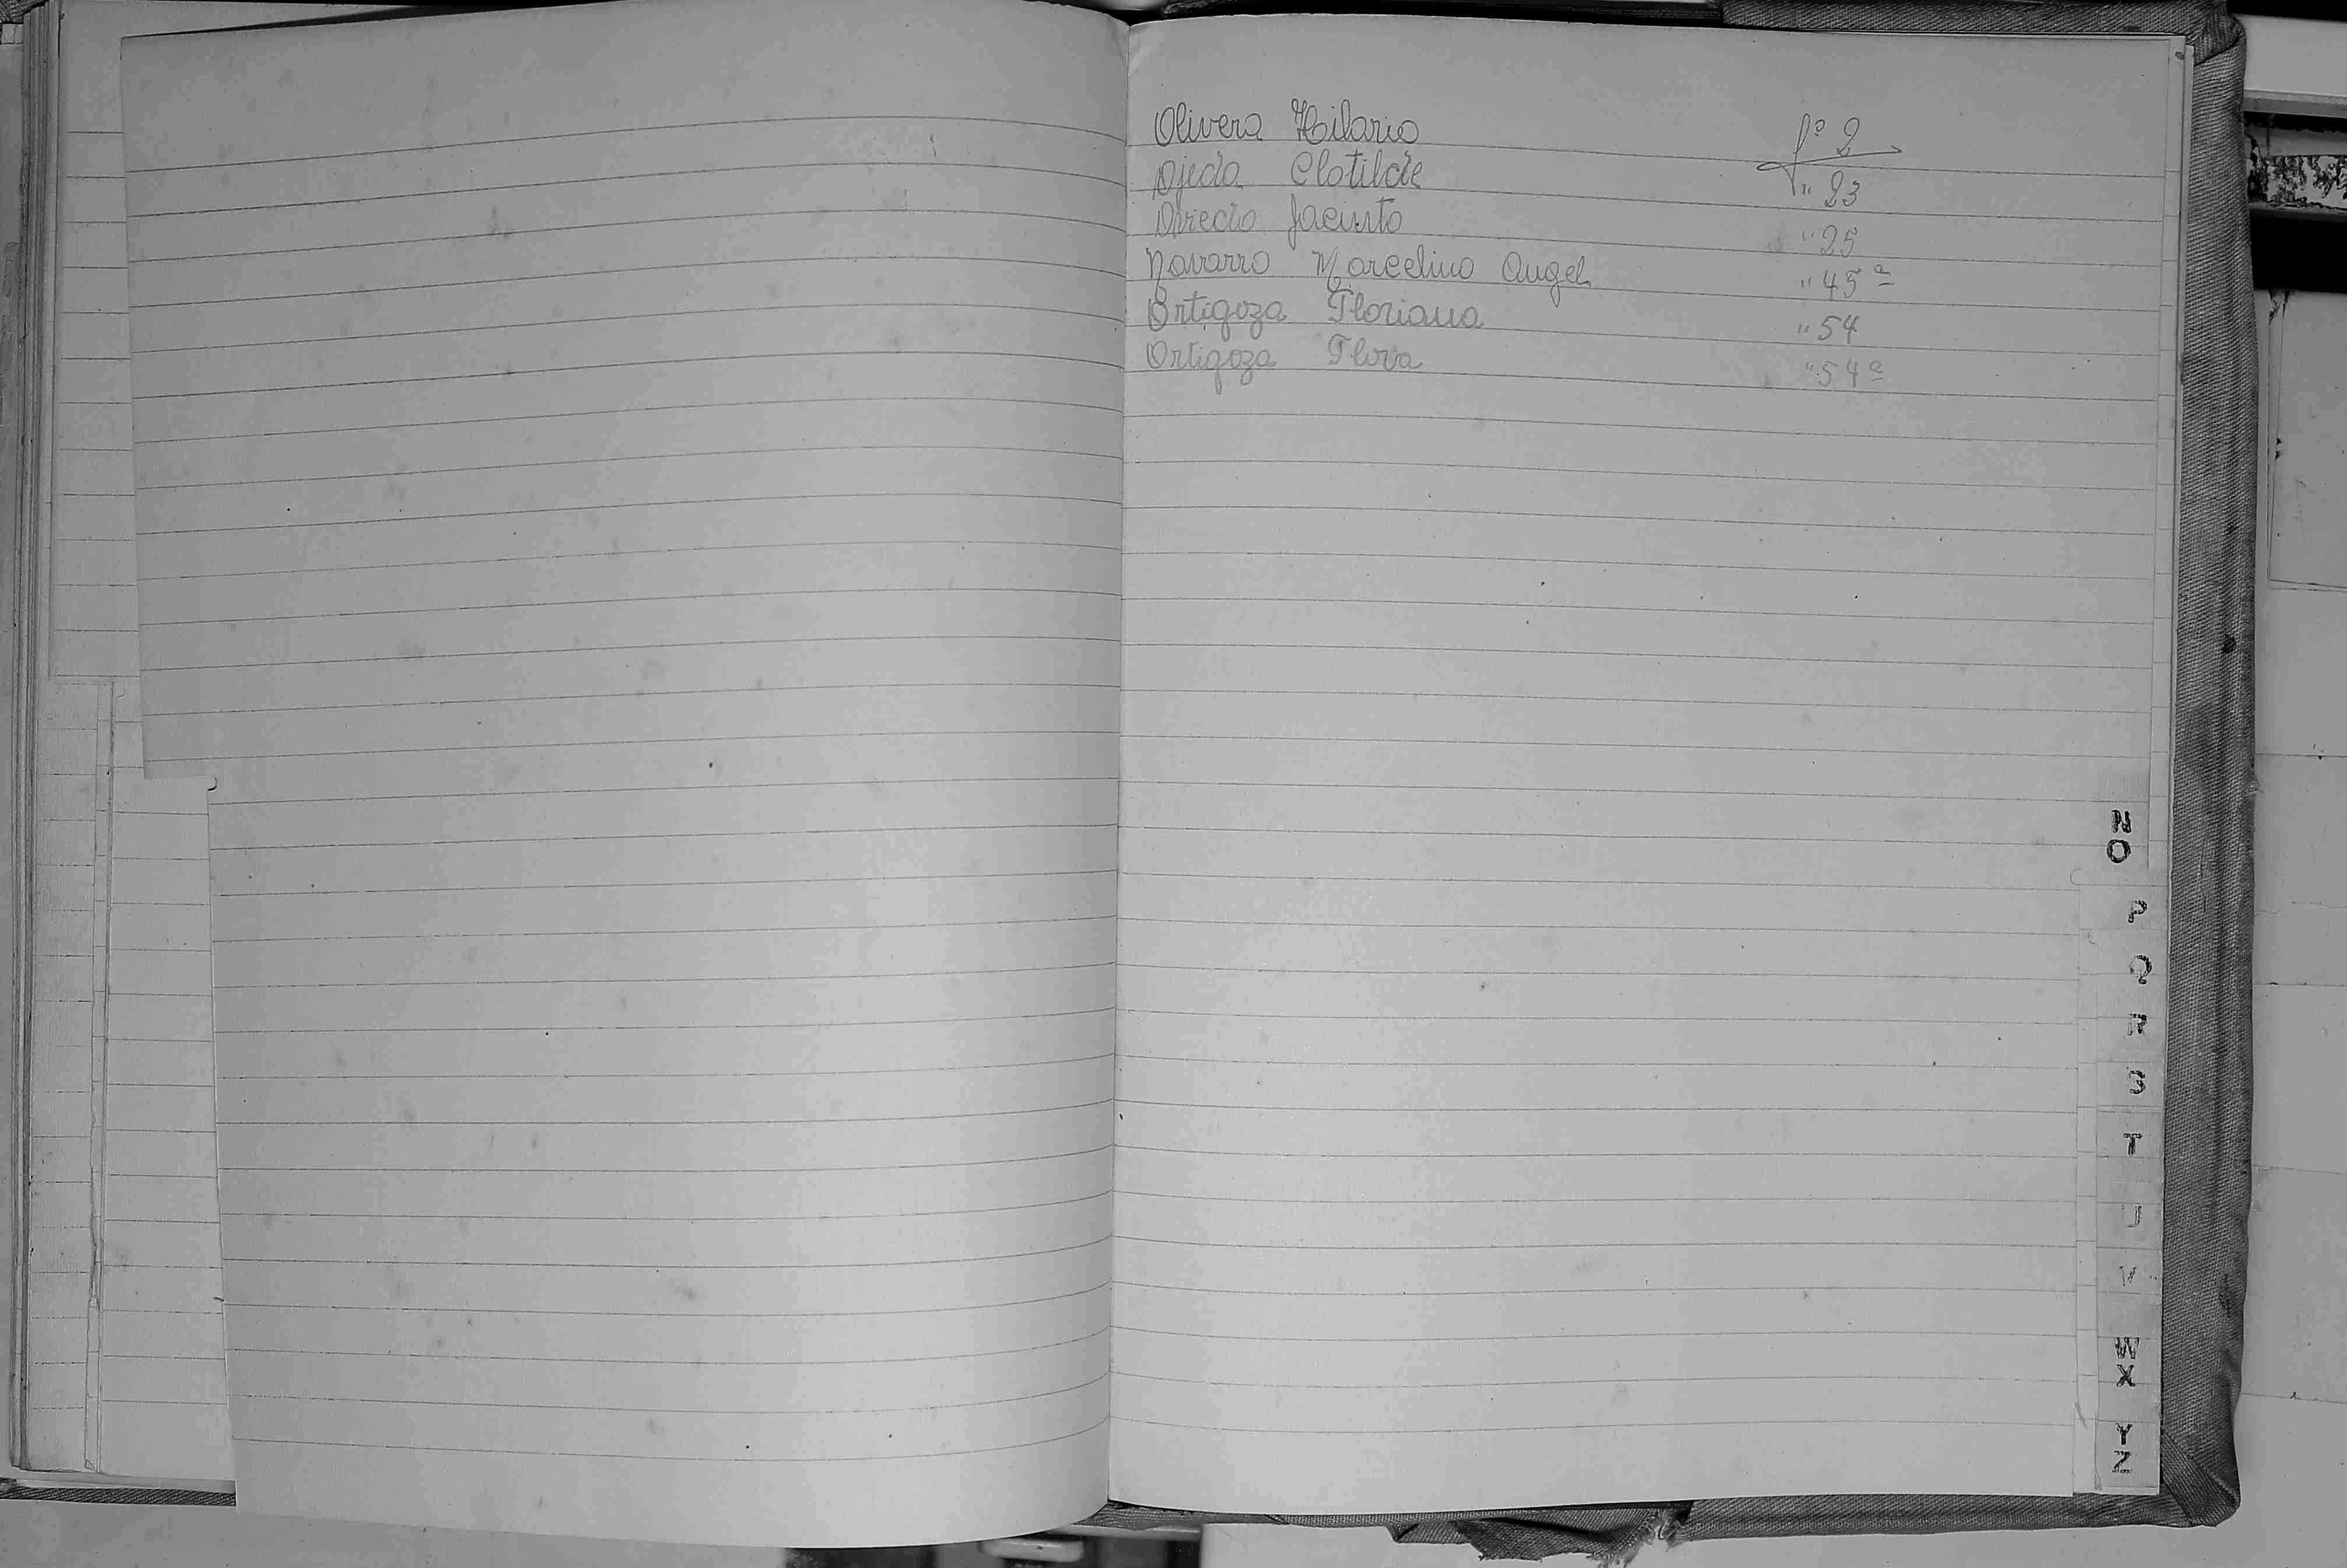 Olivera Hilario fº 2
Ojeda Clotilde " 23
Jacinto " 25
Navarro Marcelino Angel " 45ª
Ortigoza Floriana " 54
Ortigoza Flora " 54ª
N
O
P
Q
R
S
T
U
V
W
X
Y
Z